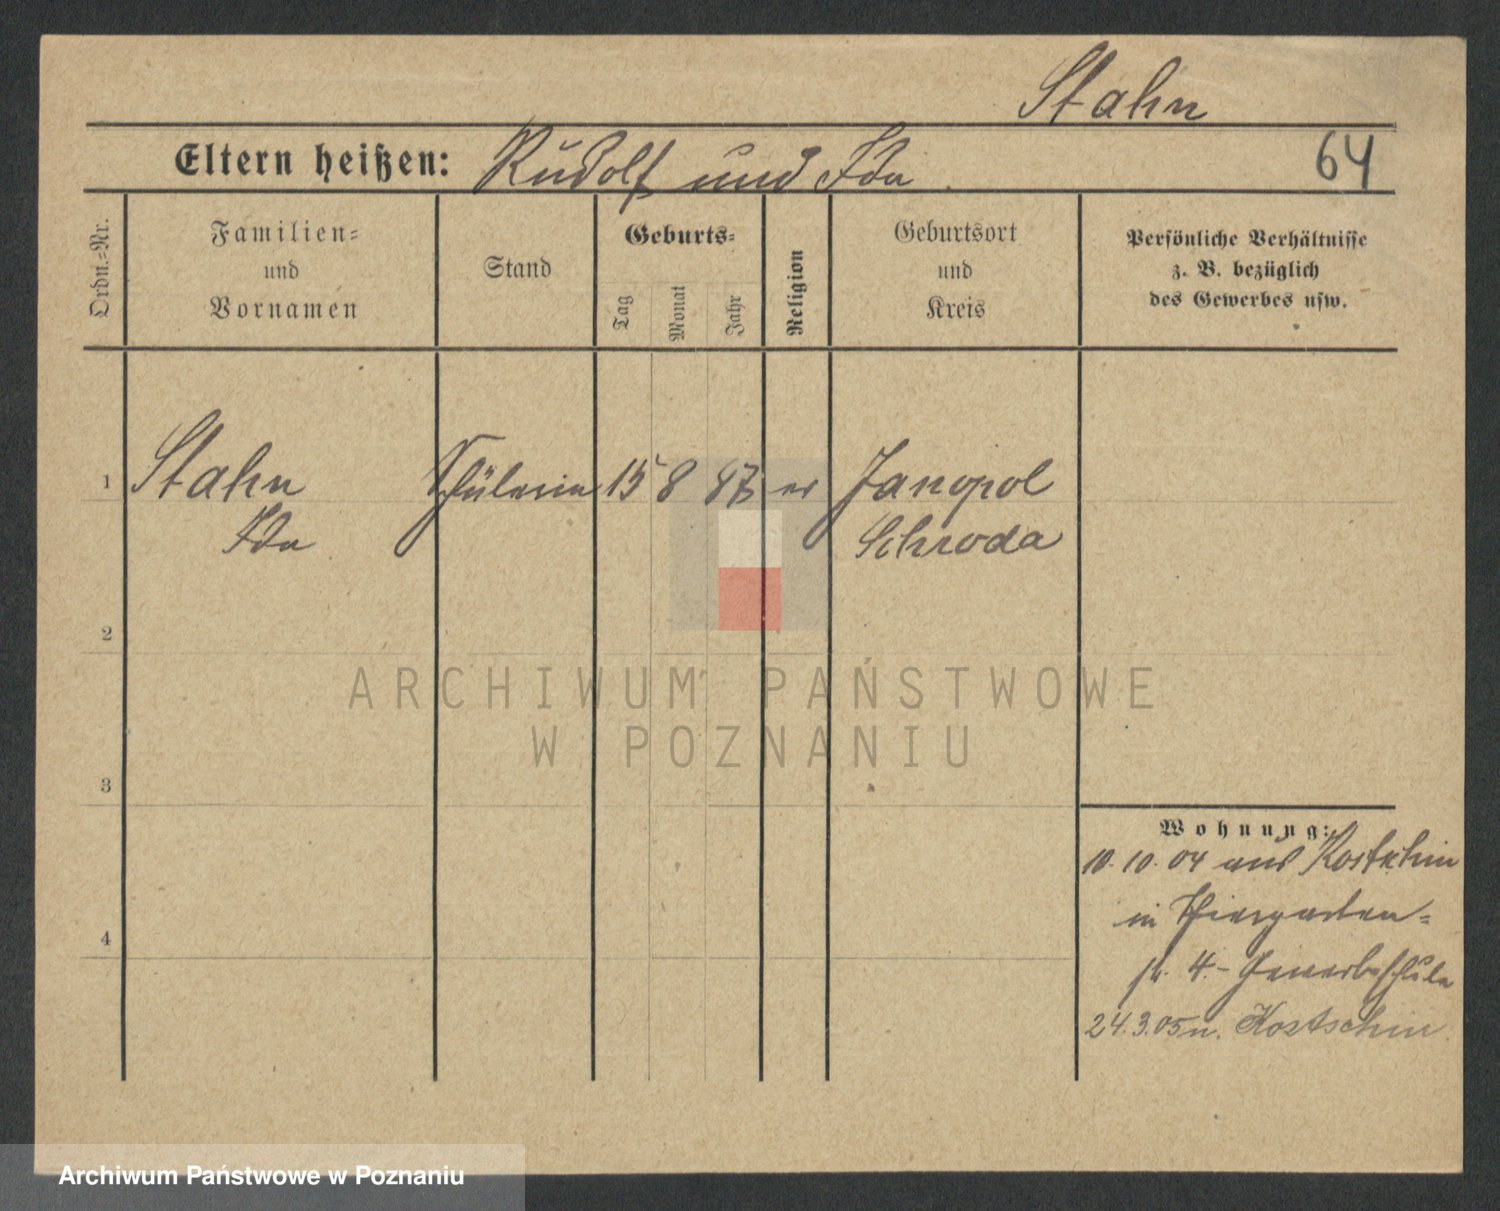 Stahn
Eltern heißen: Rudolf und Ida.
64
Ordn.-Nr.
Familien=
und
Vornamen
Stand
Geburts=
Tag
Monat
Jahr
Religion
Geburtsort
und
Kreis
Persönliche Verhältnisse
z. B. bezüglich
des Gewerbes usw.
1 Stahn Schülerin 15 8 87 ev Janopol
Ida Schroda
2
ARCHIWUM PAŃSTWOWE
W POZNANIU
3
Wohnung:
10. 10. 04 aus Kostschin
in Thiergarten=
str. 4. - Gewerbeschule
4
24.3.05 n. Kostschin.
Archiwum Państwowe w Poznaniu